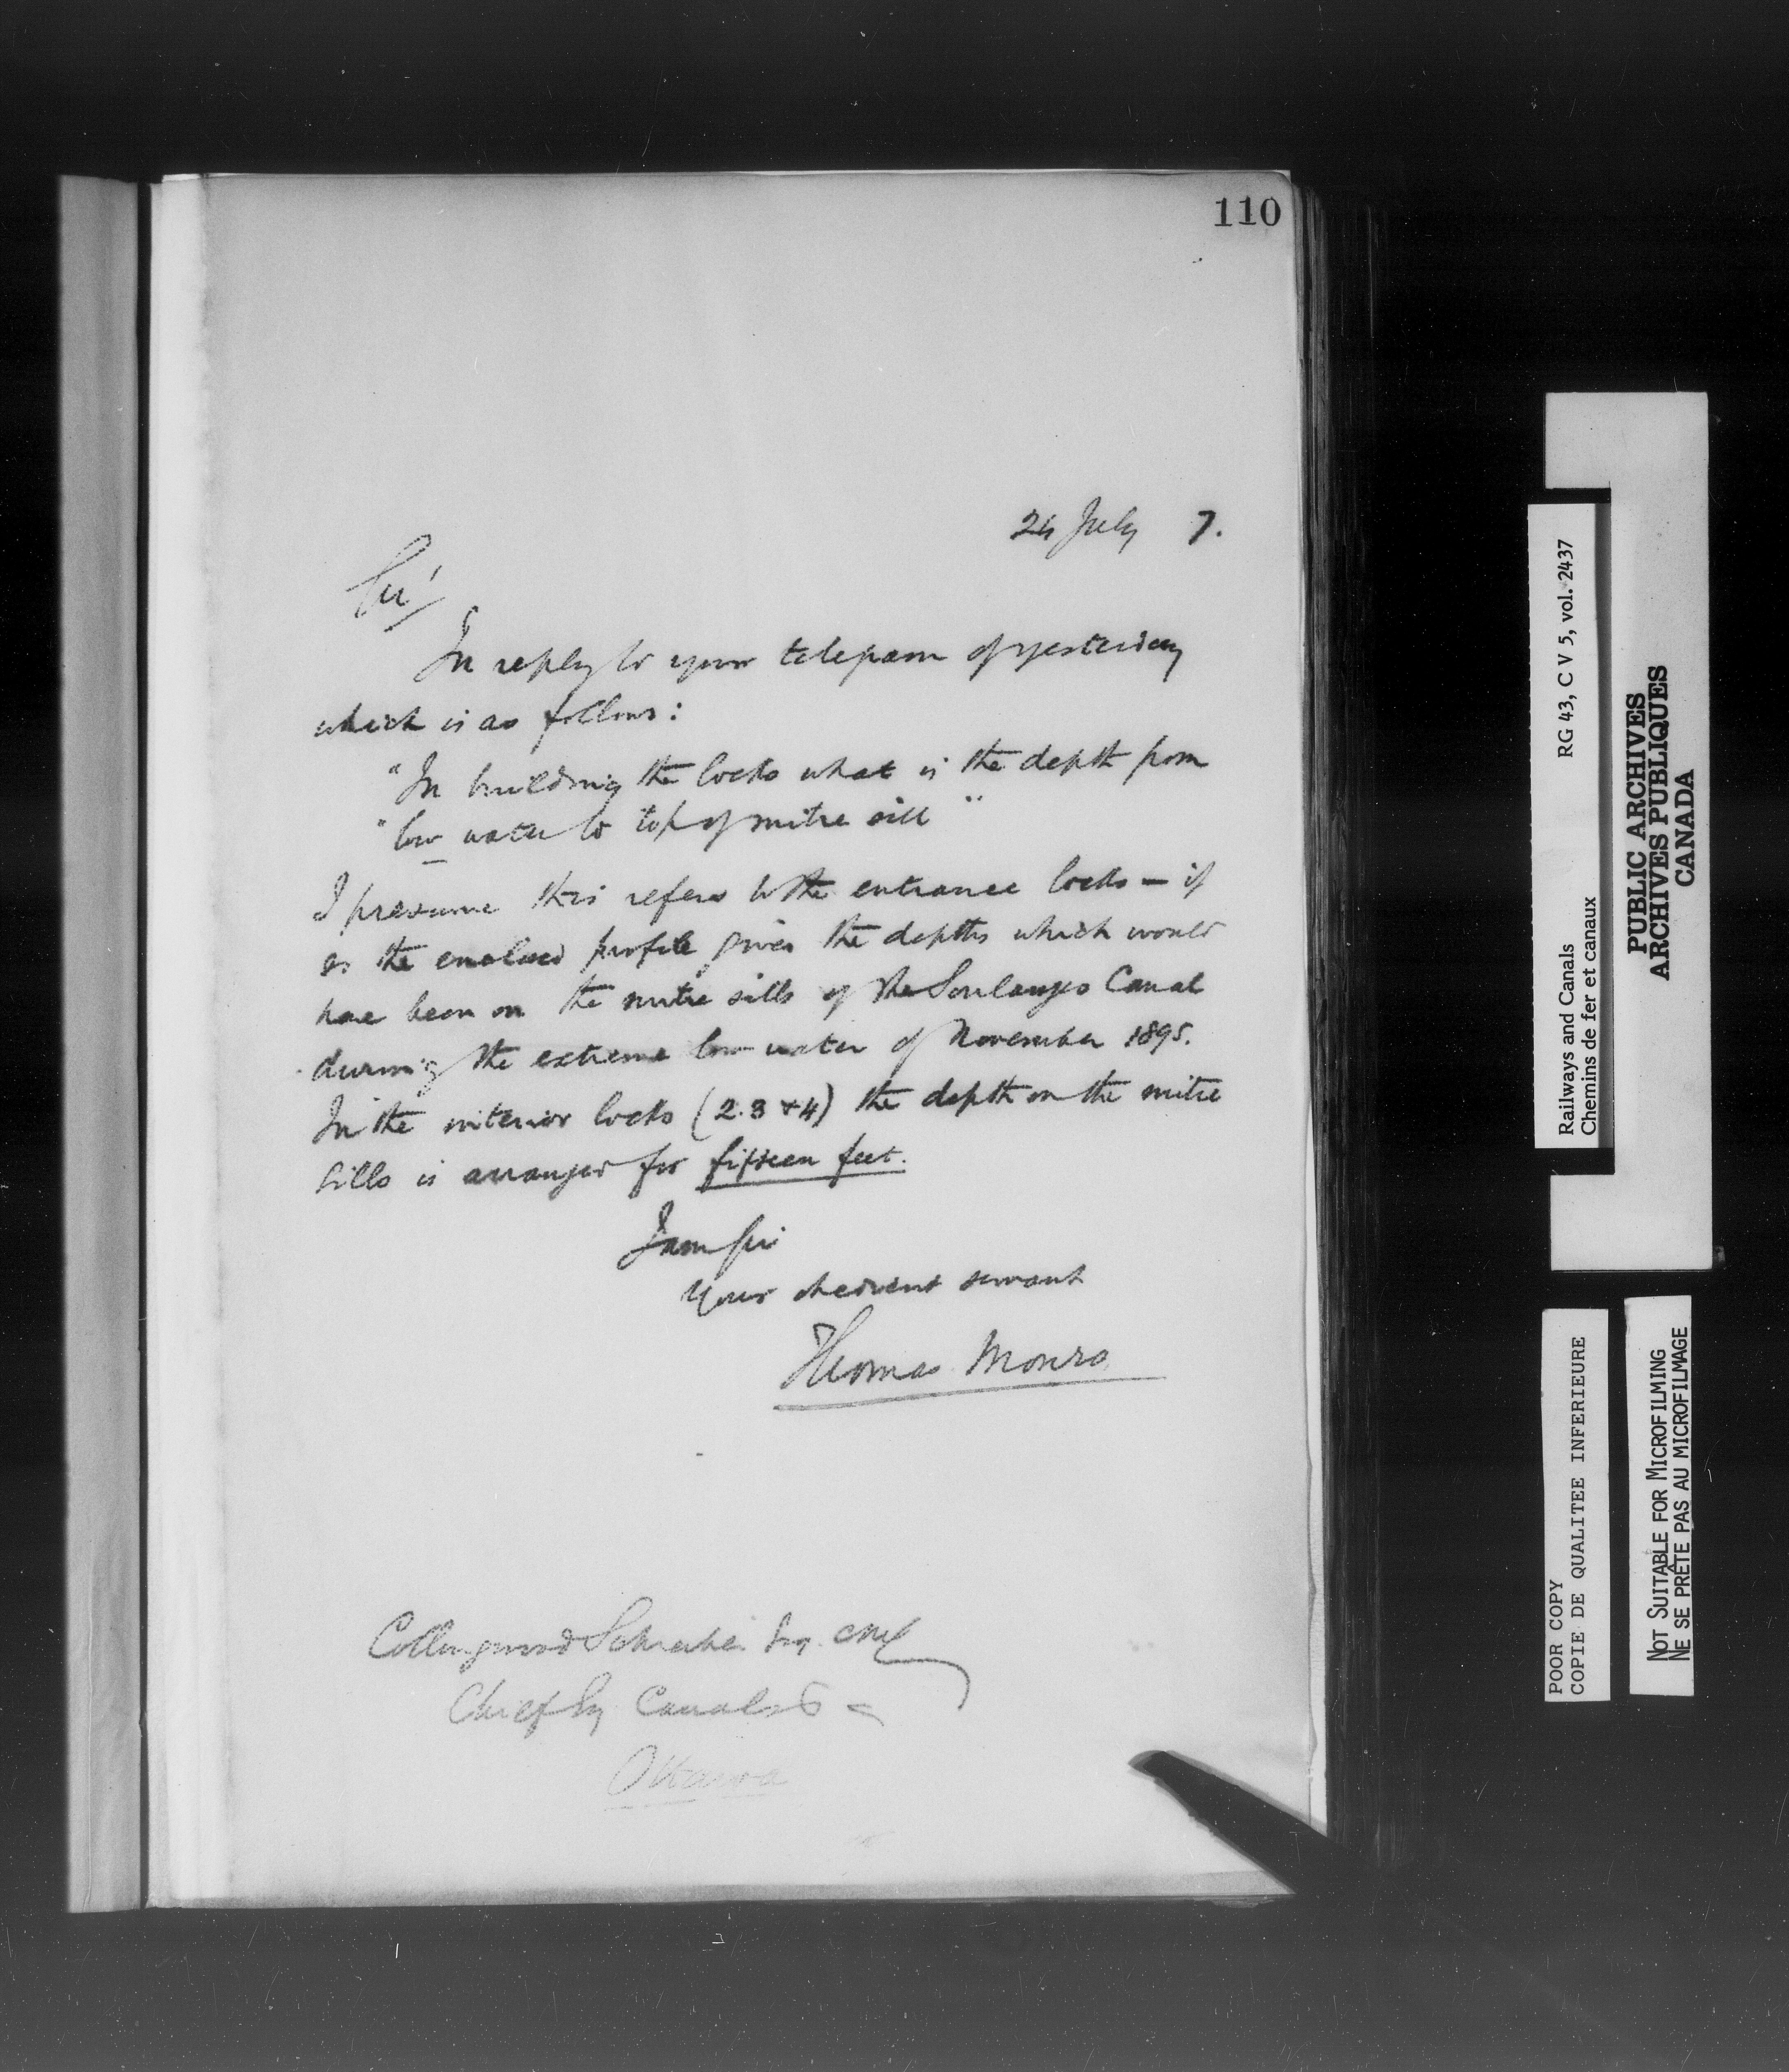 110
24 July 7.
Sir/
In reply to your telegram of yesterday
which is as follows:
"In building the locks what is the depth from
"low water to top of mitre sill"
I presume this refers to the entrance locks — if
so the enclosed profile gives the depths which would
have been on the mitre sills of the Soulanges Canal
during the extreme low water of November 1895.
In the interior locks (2.3 & 4) the depth on the mitre
sills is arranged for fifteen feet.
I am Sir
Your obedient servant
Thomas Monro
Collingwood Schreiber Esq. CMG
Chief Eng Canals
Ottawa
Railways and Canals RG 43, C V 5, vol. 2437
Chemins de fer et canaux
PUBLIC ARCHIVES
ARCHIVES PUBLIQUES
CANADA
POOR COPY
COPIE DE QUALITEE INFERIEURE
NOT SUITABLE FOR MICROFILMING
NE SE PRÊTE PAS AU MICROFILMAGE